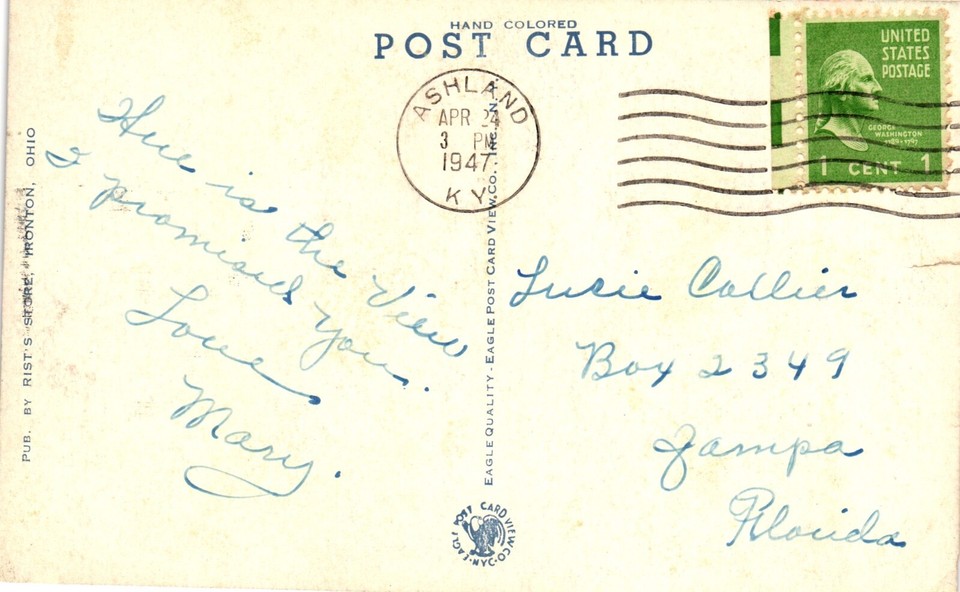 HAND COLORED
POST CARD
ASHLAND
APR 24
3 PM
1947
KY.
UNITED
STATES
POSTAGE
GEORGE
WASHINGTON
1789-1797
1 CENT 1
Here is the View
I promised you.
Love
Mary.
Lucie Collier
Box 2349
Tampa
Florida
PUB. BY RIST'S STORE, IRONTON, OHIO
EAGLE QUALITY - EAGLE POST CARD VIEW CO., INC. N.
EAGLE POST CARD VIEW CO. NYC